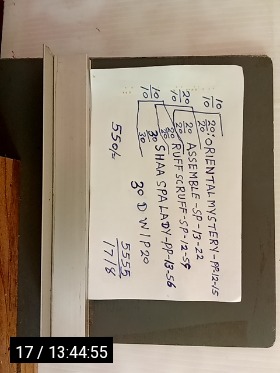 10/10 20/10 10/10
20/20 ORIENTAL MYSTERY-PP-12-15
20/20 ASSEMBLE-SP-13-22
20/20 RUFF SCRUFF-SP-12-59
30/30 SHAA SPA LADY-PP-13-56
30 D W I P 20
550/-
5555
1718
17 / 13:44:55